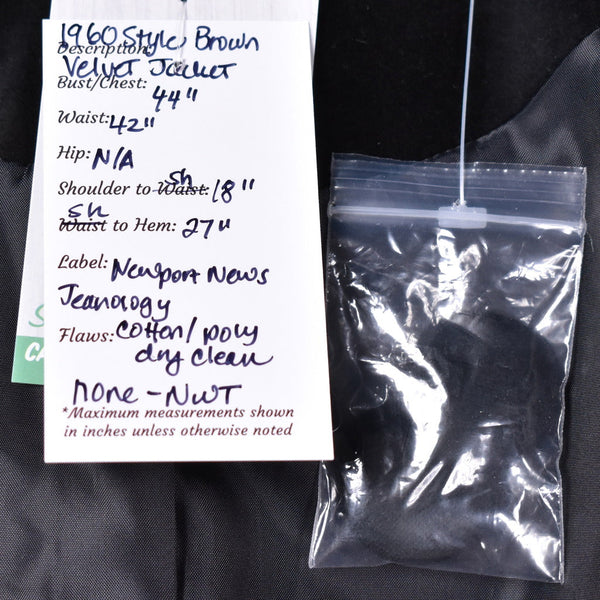 1960 Style Brown
Description:
Velvet Jacket
Bust/Chest: 44"
Waist: 42"
Hip: N/A
Shoulder to Waist: sh 18"
Waist sh to Hem: 27"
Label: Newport News
Jeanology
Flaws: Cotton/poly
dry clean
none - NWT
*Maximum measurements shown
in inches unless otherwise noted
S
CA